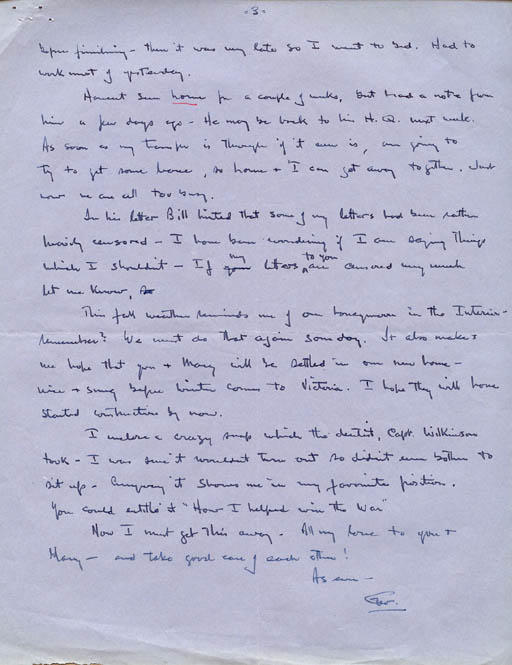 -3-
before finishing - then it was very late so I went to bed. Had to
work most of yesterday.
Havent seen home for a couple of weeks, but had a note from
him a few days ago - He may be back to his H.Q. next week.
As soon as my transfer is through if it ever is, am going to
try to get some leave, so home + I can get away together. Just
now we are all too busy.
In his letter Bill hinted that some of my letters had been rather
heavily censored - I have been wondering if I am saying things
which I shouldn't - If my letters to you are censored very much
let me know,
This fall weather reminds me of our honeymoon in the Interior -
remember? We must do that again someday. It also makes
me hope that you + Mary will be settled in our new home -
nice + snug before winter comes to Victoria. I hope they will have
started construction by now.
I enclose a crazy snap which the dentist, Capt. Wilkinson
took - I was sure it wouldn't turn out so didn't even bother to
sit up - Anyway it shows me in my favorite position.
You could entitle it "How I helped win the War"
Now I must get this away. All my love to you +
Mary - and take good care of each other!
As ever -